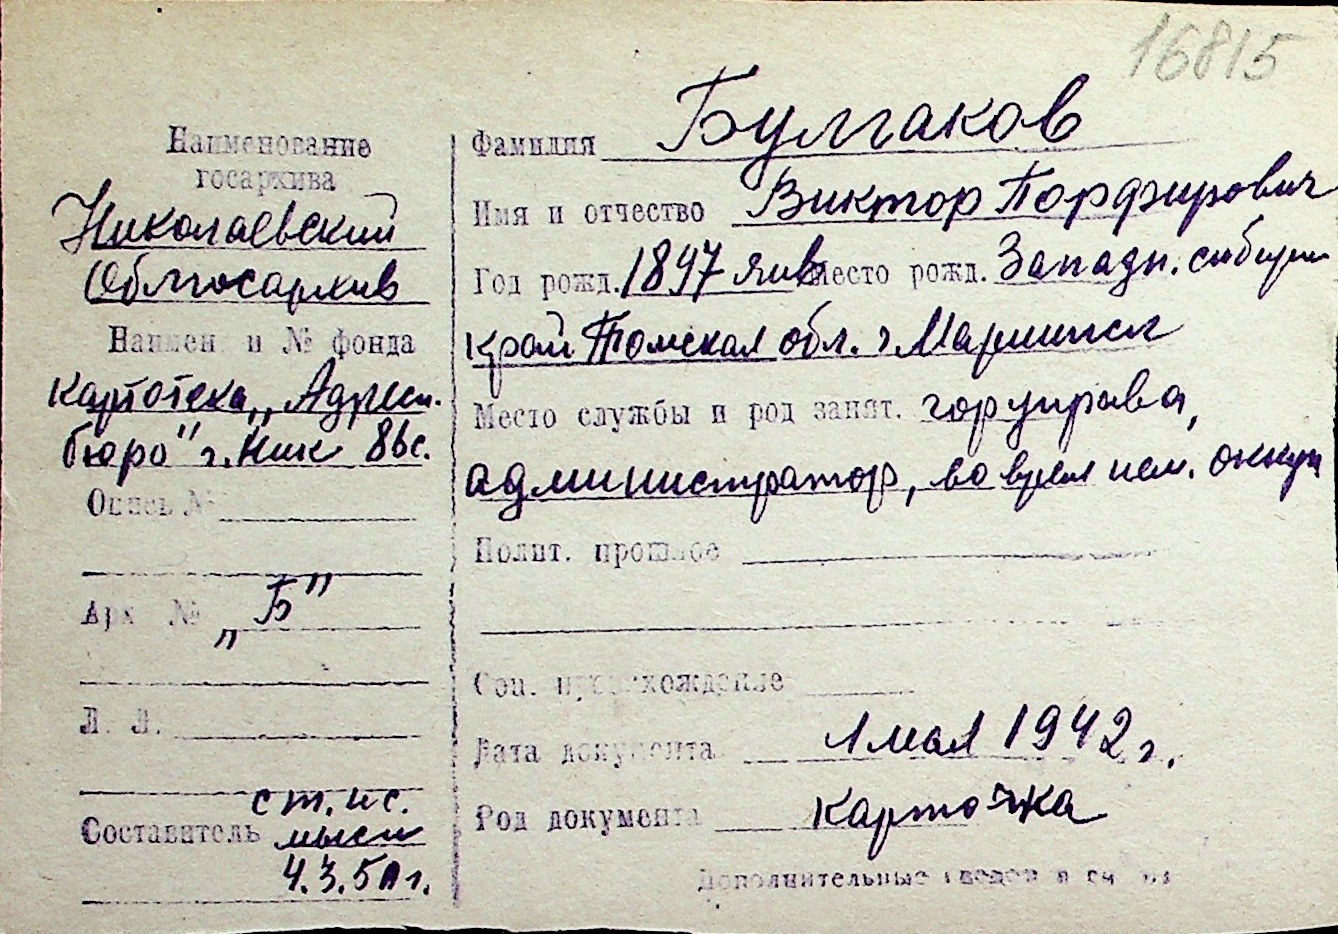 16815
Наименование
госархива
Николаевский
Облгосархив
Наимен. и № фонда
картотека „Адресн.
бюро" г. Ник
Опись №
Арх №
„Б"
Л. Л.
Составитель
ст. н с.
4.3.50 г.
Фамилия Булгаков
Имя и отчество Виктор Порфирович
Год рожд. 1897 янв Место рожд. Западн. сибирск
край Томская обл. г Мариинск
Место службы и род занят. горуправа,
администратор, во время нем. оккуп
Полит. прошлое
Соц. происхождение
Дата документа 1 мая 1942 г.
Род документа карточка
Дополнительные сведен